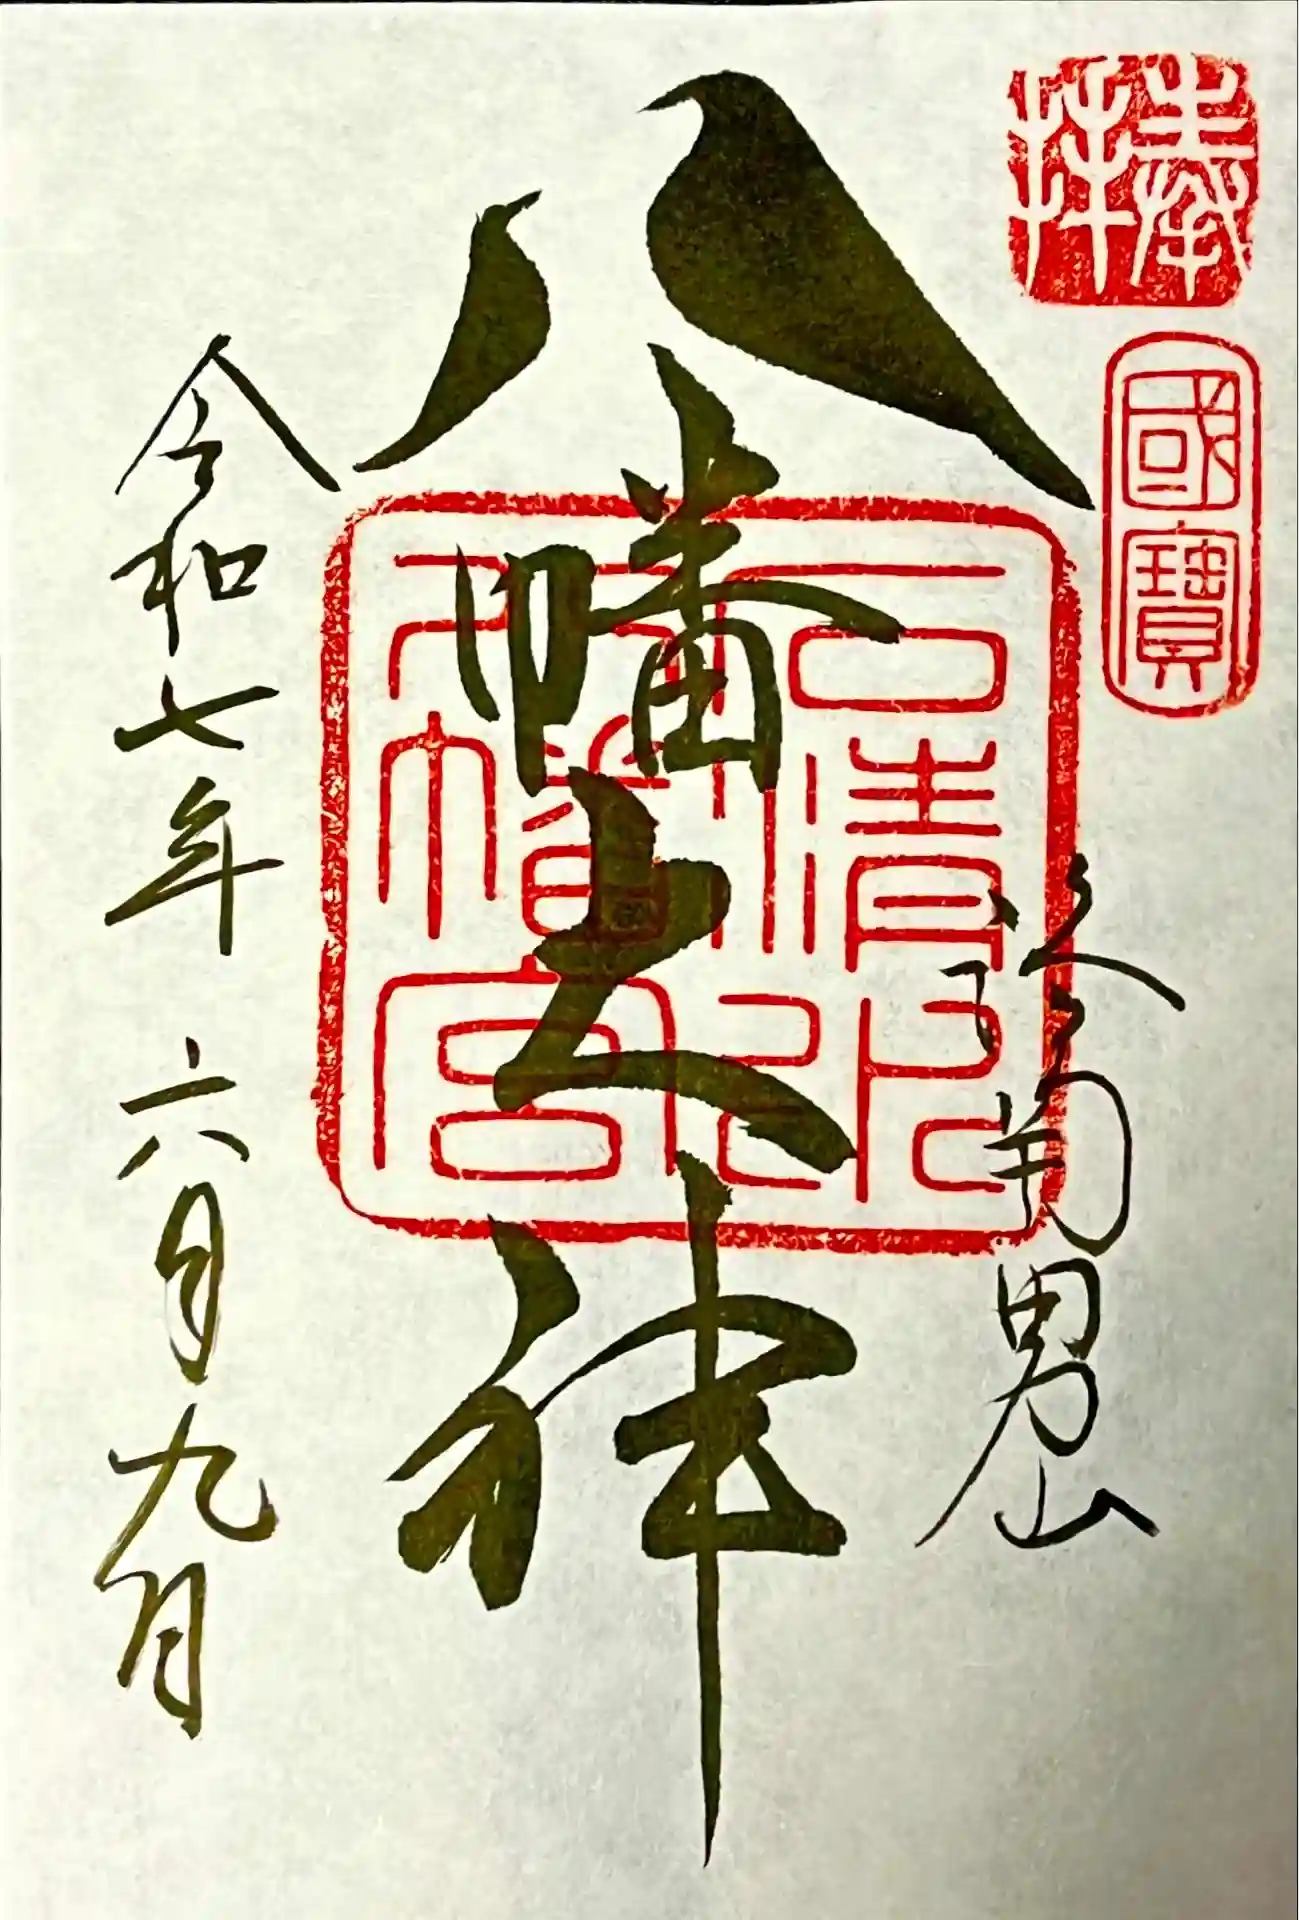 奉拝
國寶
洛南男山
八幡大神
石清水八幡宮印
令和七年 六月九日